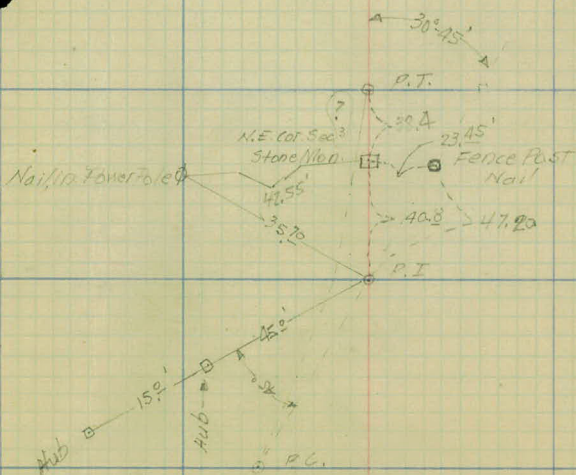 30°-45'
P.T.
?
38.4
N.E. Cor. Sec. 3
Stone Mon.
23.45'
Fence Post
Nail
Nail in Power Pole
42.55'
35.70
40.8
47.20
P.I
45.0'
15.0'
Hub
Hub
P.C.